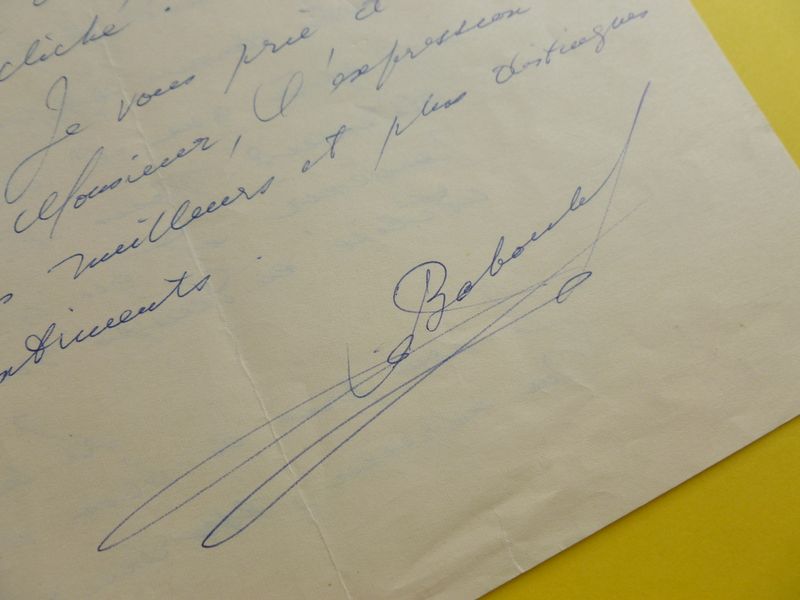 cliché.
Je vous prie d
Monsieur, l'expression
meilleurs et plus distingués
timents.
Baboulet